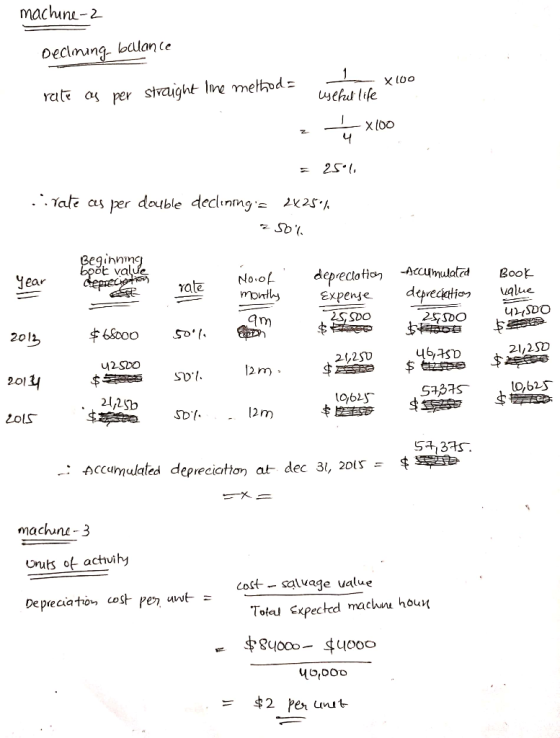 machine-2
Declining balance
rate as per straight line method = 1 / useful life × 100
= 1 / 4 × 100
= 25%
∴ rate as per double declining = 2×25%
= 50%
Year Beginning book value rate No. of months depreciation Expense Accumulated depreciation Book value
2013 $68000 50% 9m $25,500 $25,500 $42,500
2014 $42500 50% 12m. $21,250 $46,750 $21,250
2015 $21,250 50% 12m $10,625 $57,375 $10,625
∴ Accumulated depreciation at dec 31, 2015 = $57,375.
=x=
machine-3
Units of activity
Depreciation cost per unit = cost - salvage value / Total Expected machine hours
= $84000 - $4000 / 40,000
= $2 per unit